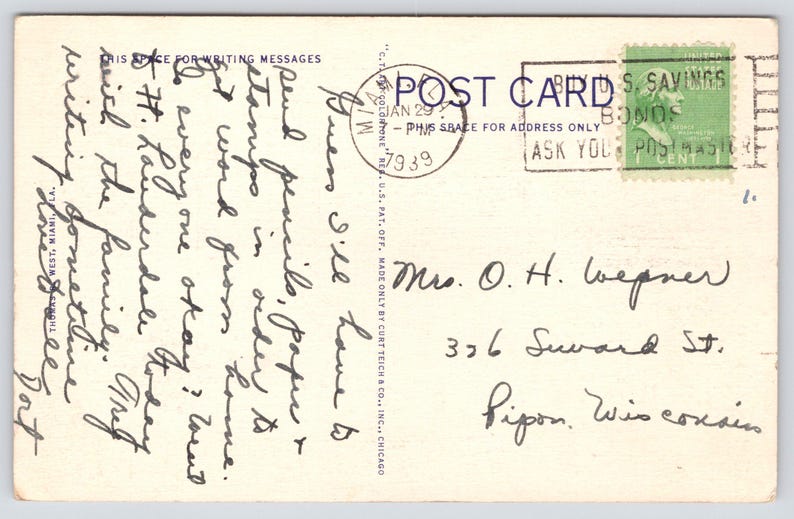 THIS SPACE FOR WRITING MESSAGES
Guess I'll have to
send pencils, paper &
stamps in order to
get word from home.
Is everyone okay? Went
to Ft. Lauderdale today
with the family. Try
writing sometime
Love to all
Dort
THOMAS W. WEST, MIAMI, FLA.
"C.T. ART-COLORTONE" REG. U.S. PAT. OFF. MADE ONLY BY CURT TEICH & CO., INC., CHICAGO
POST CARD
THIS SPACE FOR ADDRESS ONLY
MIAMI, FLA.
JAN 29
-PM
1939
BUY U.S. SAVINGS
BONDS
ASK YOUR POSTMASTER
UNITED
STATES
POSTAGE
GEORGE
WASHINGTON
1 CENT 1
1.
Mrs. O. H. Wepner
326 Seward St.
Ripon, Wisconsin